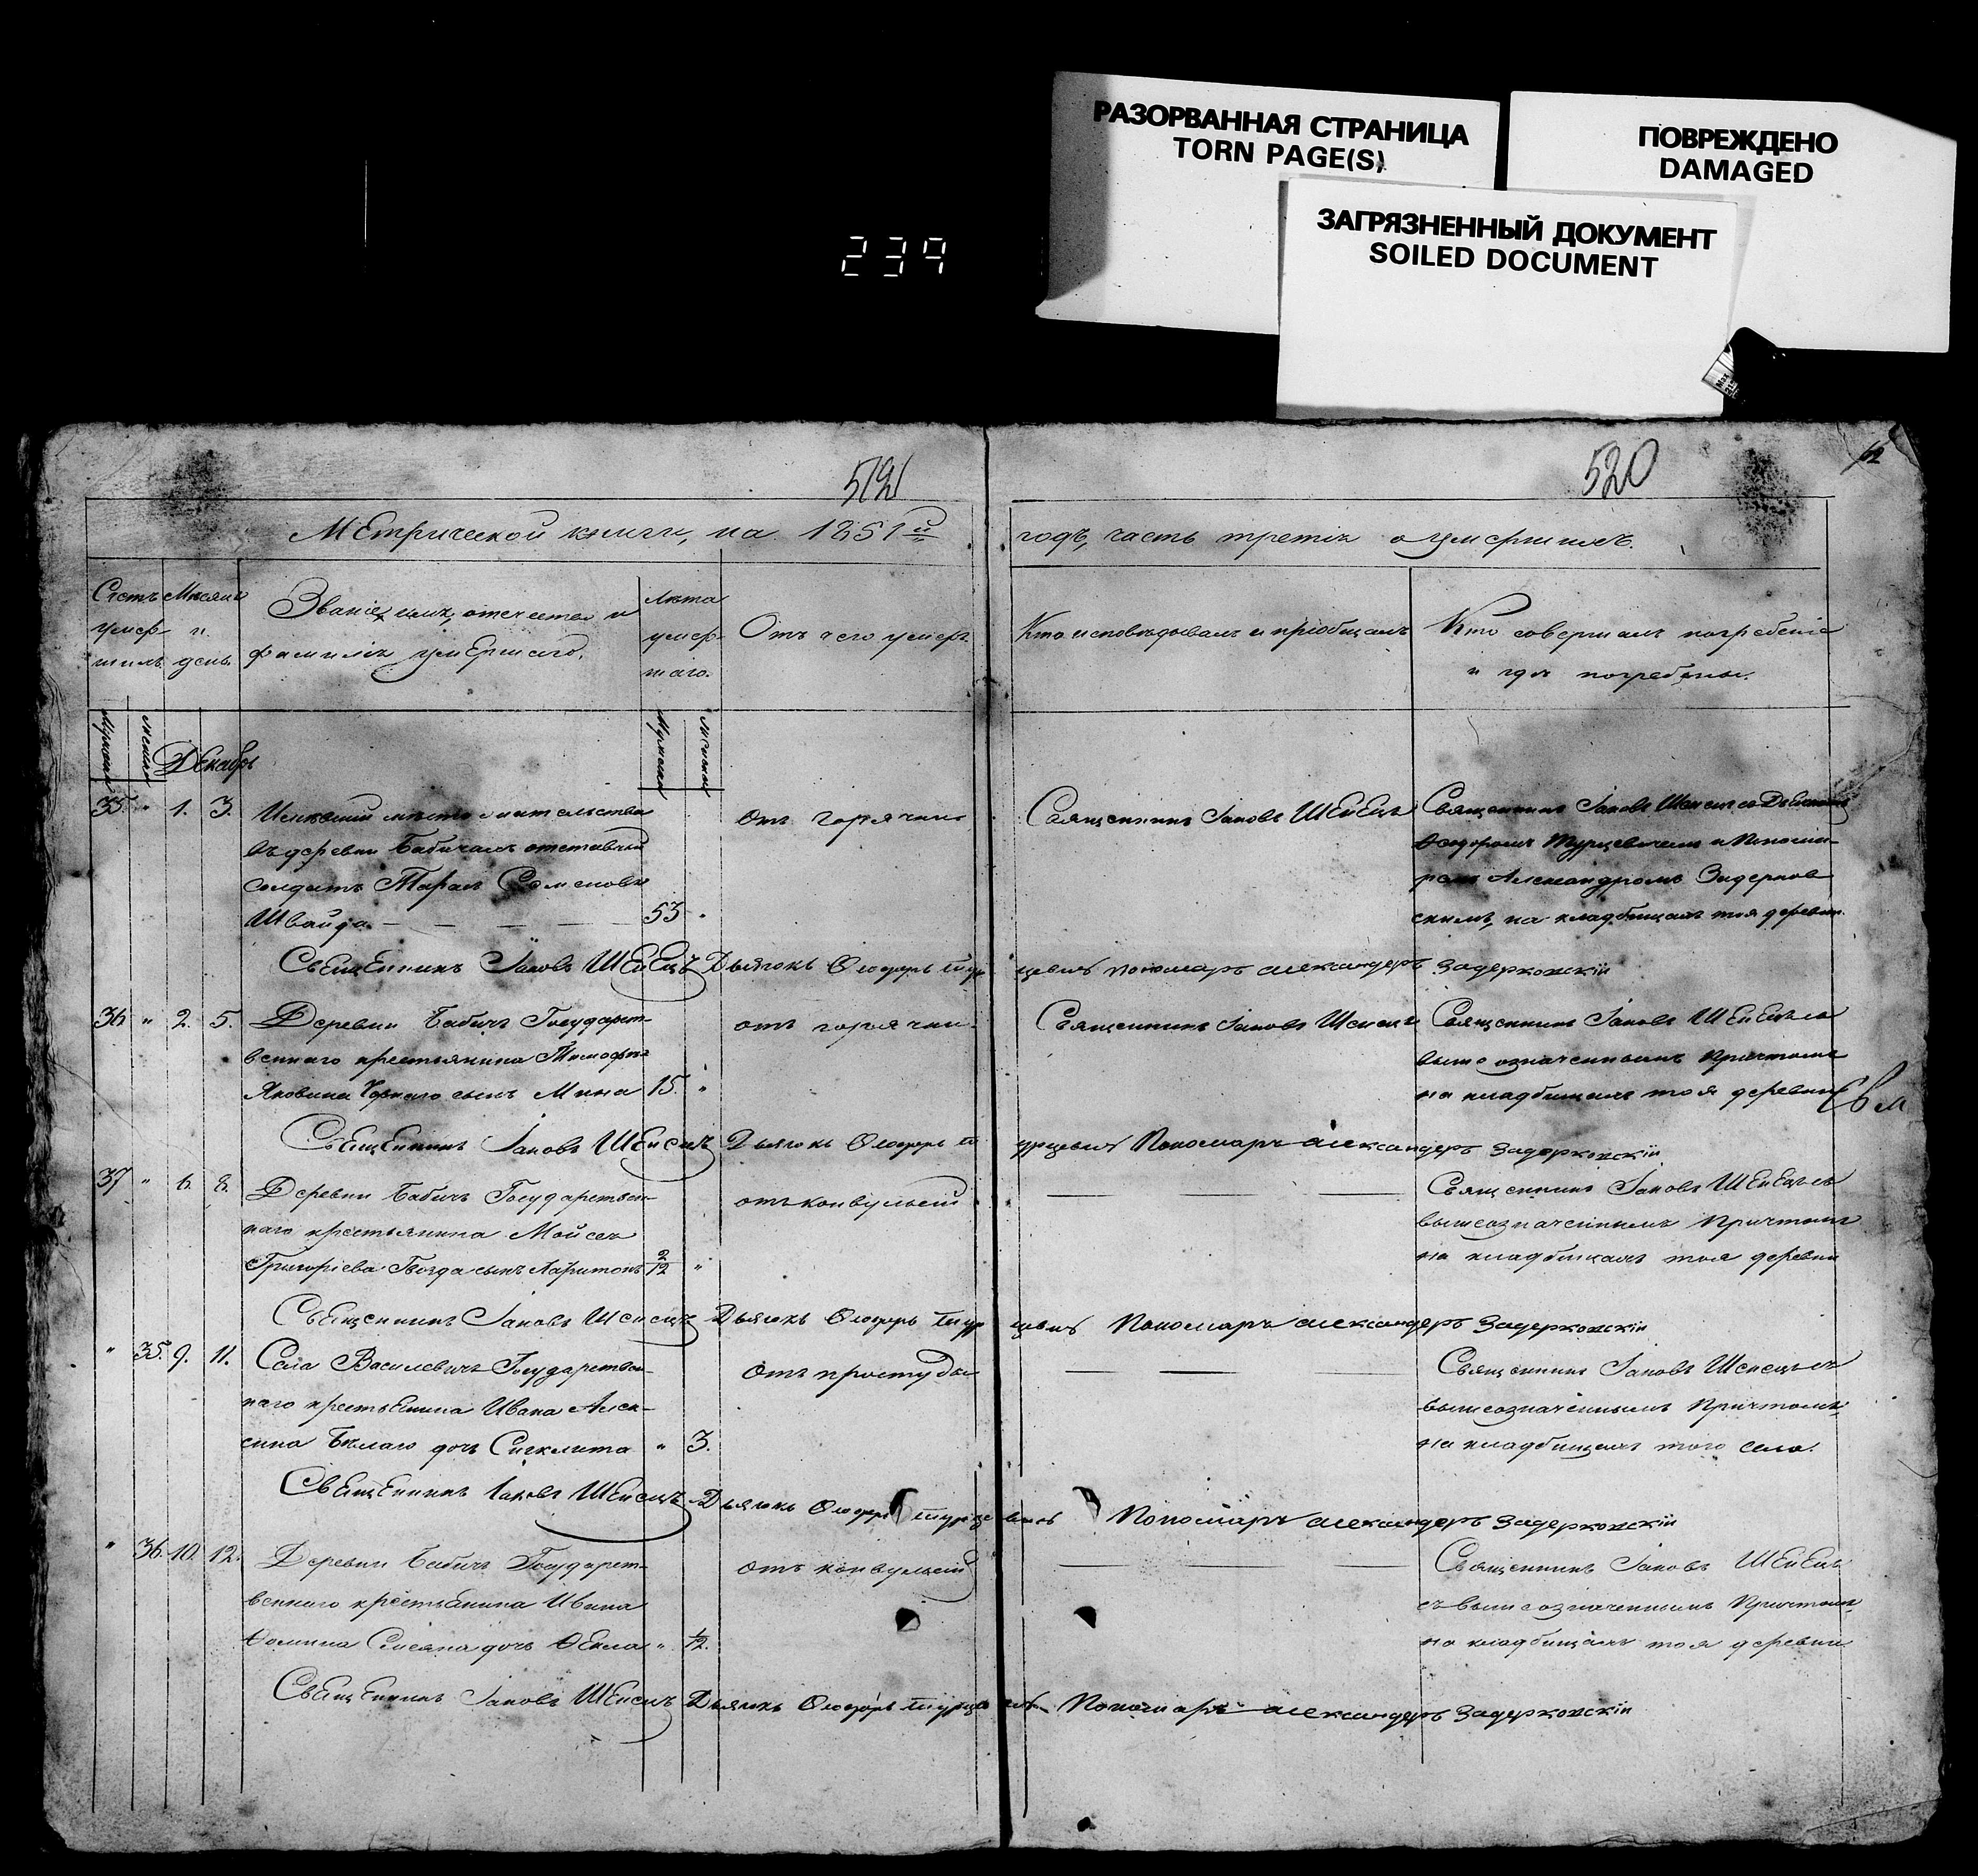 РАЗОРВАННАЯ СТРАНИЦА
TORN PAGE(S)
ПОВРЕЖДЕНО
DAMAGED
ЗАГРЯЗНЕННЫЙ ДОКУМЕНТ
SOILED DOCUMENT
239
520
Метрической книги, на 1851й
годъ, часть третія о умершихъ.
Счетъ умер-шихъ.
Мѣсяцъ и день.
Званіе, имя, отечество и
фамилія умершаго.
Лѣта
умер-
шаго.
Отъ чего умеръ
Кто исповѣдывалъ и пріобщалъ
Кто совершалъ погребеніе
и гдѣ погребены.
Декабрь
35. " 1. 3.
Имѣвшій мѣсто жительства
въ деревни Бабичахъ отставный
солдатъ Тарас Семеновъ
Швайда
53 "
отъ горячки
Священникъ Іаковъ Шенецъ
Священникъ Іаковъ Шенецъ со Дьячкомъ
Ѳеодоромъ Турцевичемъ и Понома-
ремъ Александромъ Задерков
скимъ, на кладбищахъ тоя деревни.
Священникъ Іаковъ Шенецъ Дьячокъ Ѳеодоръ Турцевичъ Пономаръ Александеръ Задерковскій
36. " 2. 5.
Деревни Бабичъ Государст-
веннаго крестьянина Тимофея
Яковина Чорнаго сынъ Мина 15. "
отъ горячки.
Священникъ Іаковъ Шенецъ
Священникъ Іаковъ Шенецъ съ
вышеозначеннымъ Причтомъ
на кладбищахъ тоя деревни
Священникъ Іаковъ Шенецъ Дьячокъ Ѳеодоръ Турцевичъ Пономаръ Александеръ Задерковскій
37 " 6. 8.
Деревни Бабичъ Государствен-
наго крестьянина Мойсея
Григоріева Гвозда сынъ Харитонъ 2/12 "
отъ конвульсій
Священникъ Іаковъ Шенецъ съ
вышеозначеннымъ Причтомъ
на кладбищахъ тоя деревни
Священникъ Іаковъ Шенецъ Дьячокъ Ѳеодоръ Турцевичъ Пономаръ Александеръ Задерковскій
" 35. 9. 11.
Села Василевичъ Государствен-
наго крестьянина Ивана Алек-
сина Бѣлаго дочь Сигклита " 3.
отъ простуды
Священникъ Іаковъ Шенецъ съ
вышеозначеннымъ Причтомъ
на кладбищахъ того села.
Священникъ Іаковъ Шенецъ Дьячокъ Ѳеодоръ Турцевичъ Пономаръ Александеръ Задерковскій
" 36. 10. 12.
Деревни Бабичъ Государст-
веннаго крестьянина Ивана
Ѳомина дочь Ѳекла " 1/12.
отъ конвульсій
Священникъ Іаковъ Шенецъ
съ вышеозначеннымъ Причтомъ
на кладбищахъ тоя деревни
Священникъ Іаковъ Шенецъ Дьячокъ Ѳеодоръ Турцевичъ Пономаръ Александеръ Задерковскій